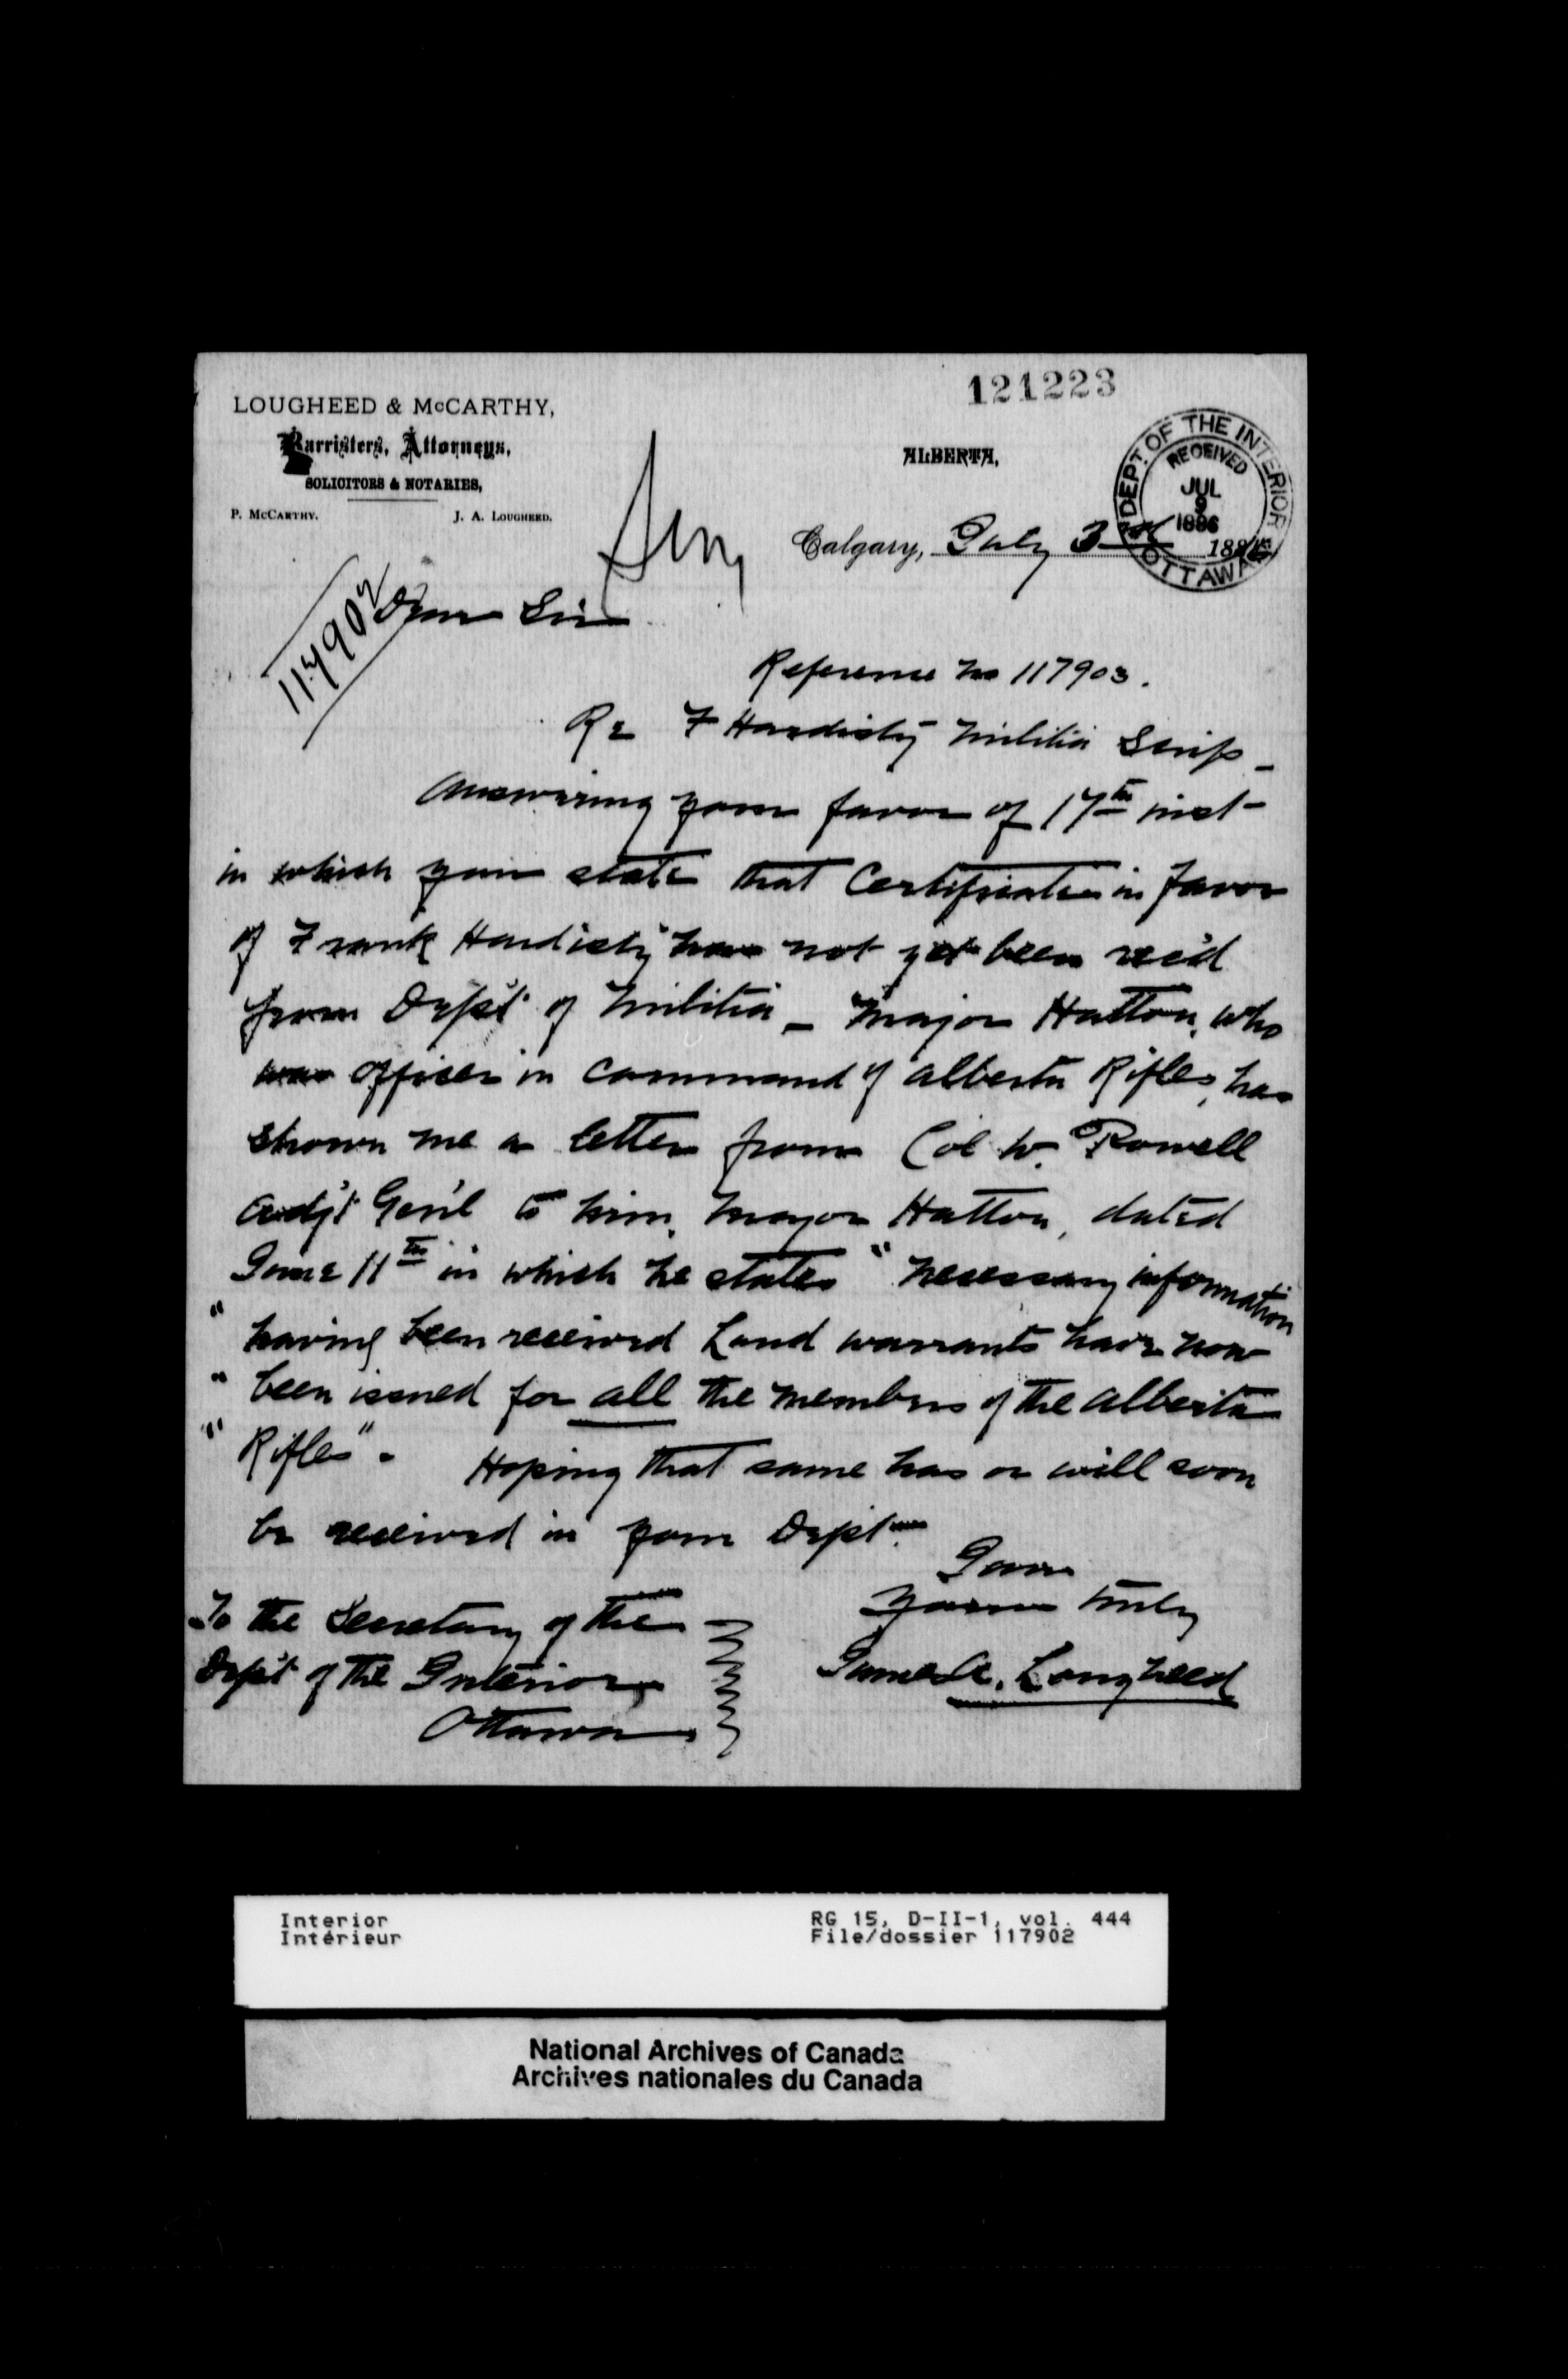 121223
LOUGHEED & McCARTHY,
Barristers, Attorneys,
SOLICITORS & NOTARIES,
P. McCARTHY. J. A. LOUGHEED.
ALBERTA,
DEPT. OF THE INTERIOR
RECEIVED
JUL
9
1886
OTTAWA
Calgary, July 3rd 1886
117902
Dear Sir
Reference No 117903.
Re F Hardisty Militia Scrip -
Answering your favor of 17th inst -
in which you state that Certificate in favor
of Frank Hardisty has not yet been rec'd
from Dep't of Militia - Major Hatton, who
was officer in command of Alberta Rifles, has
shown me a letter from Col W. Powell
Adj't Gen'l to him, Major Hatton, dated
June 11th in which he states "necessary information
" having been received Land warrants have now
" been issued for all the members of the Alberta
" Rifles". Hoping that same has or will soon
be received in your Dept.
I am
Yours truly
James A. Lougheed
To the Secretary of the
Dep't of the Interior
Ottawa
Interior RG 15, D-II-1, vol. 444
Intérieur File/dossier 117902
National Archives of Canada
Archives nationales du Canada